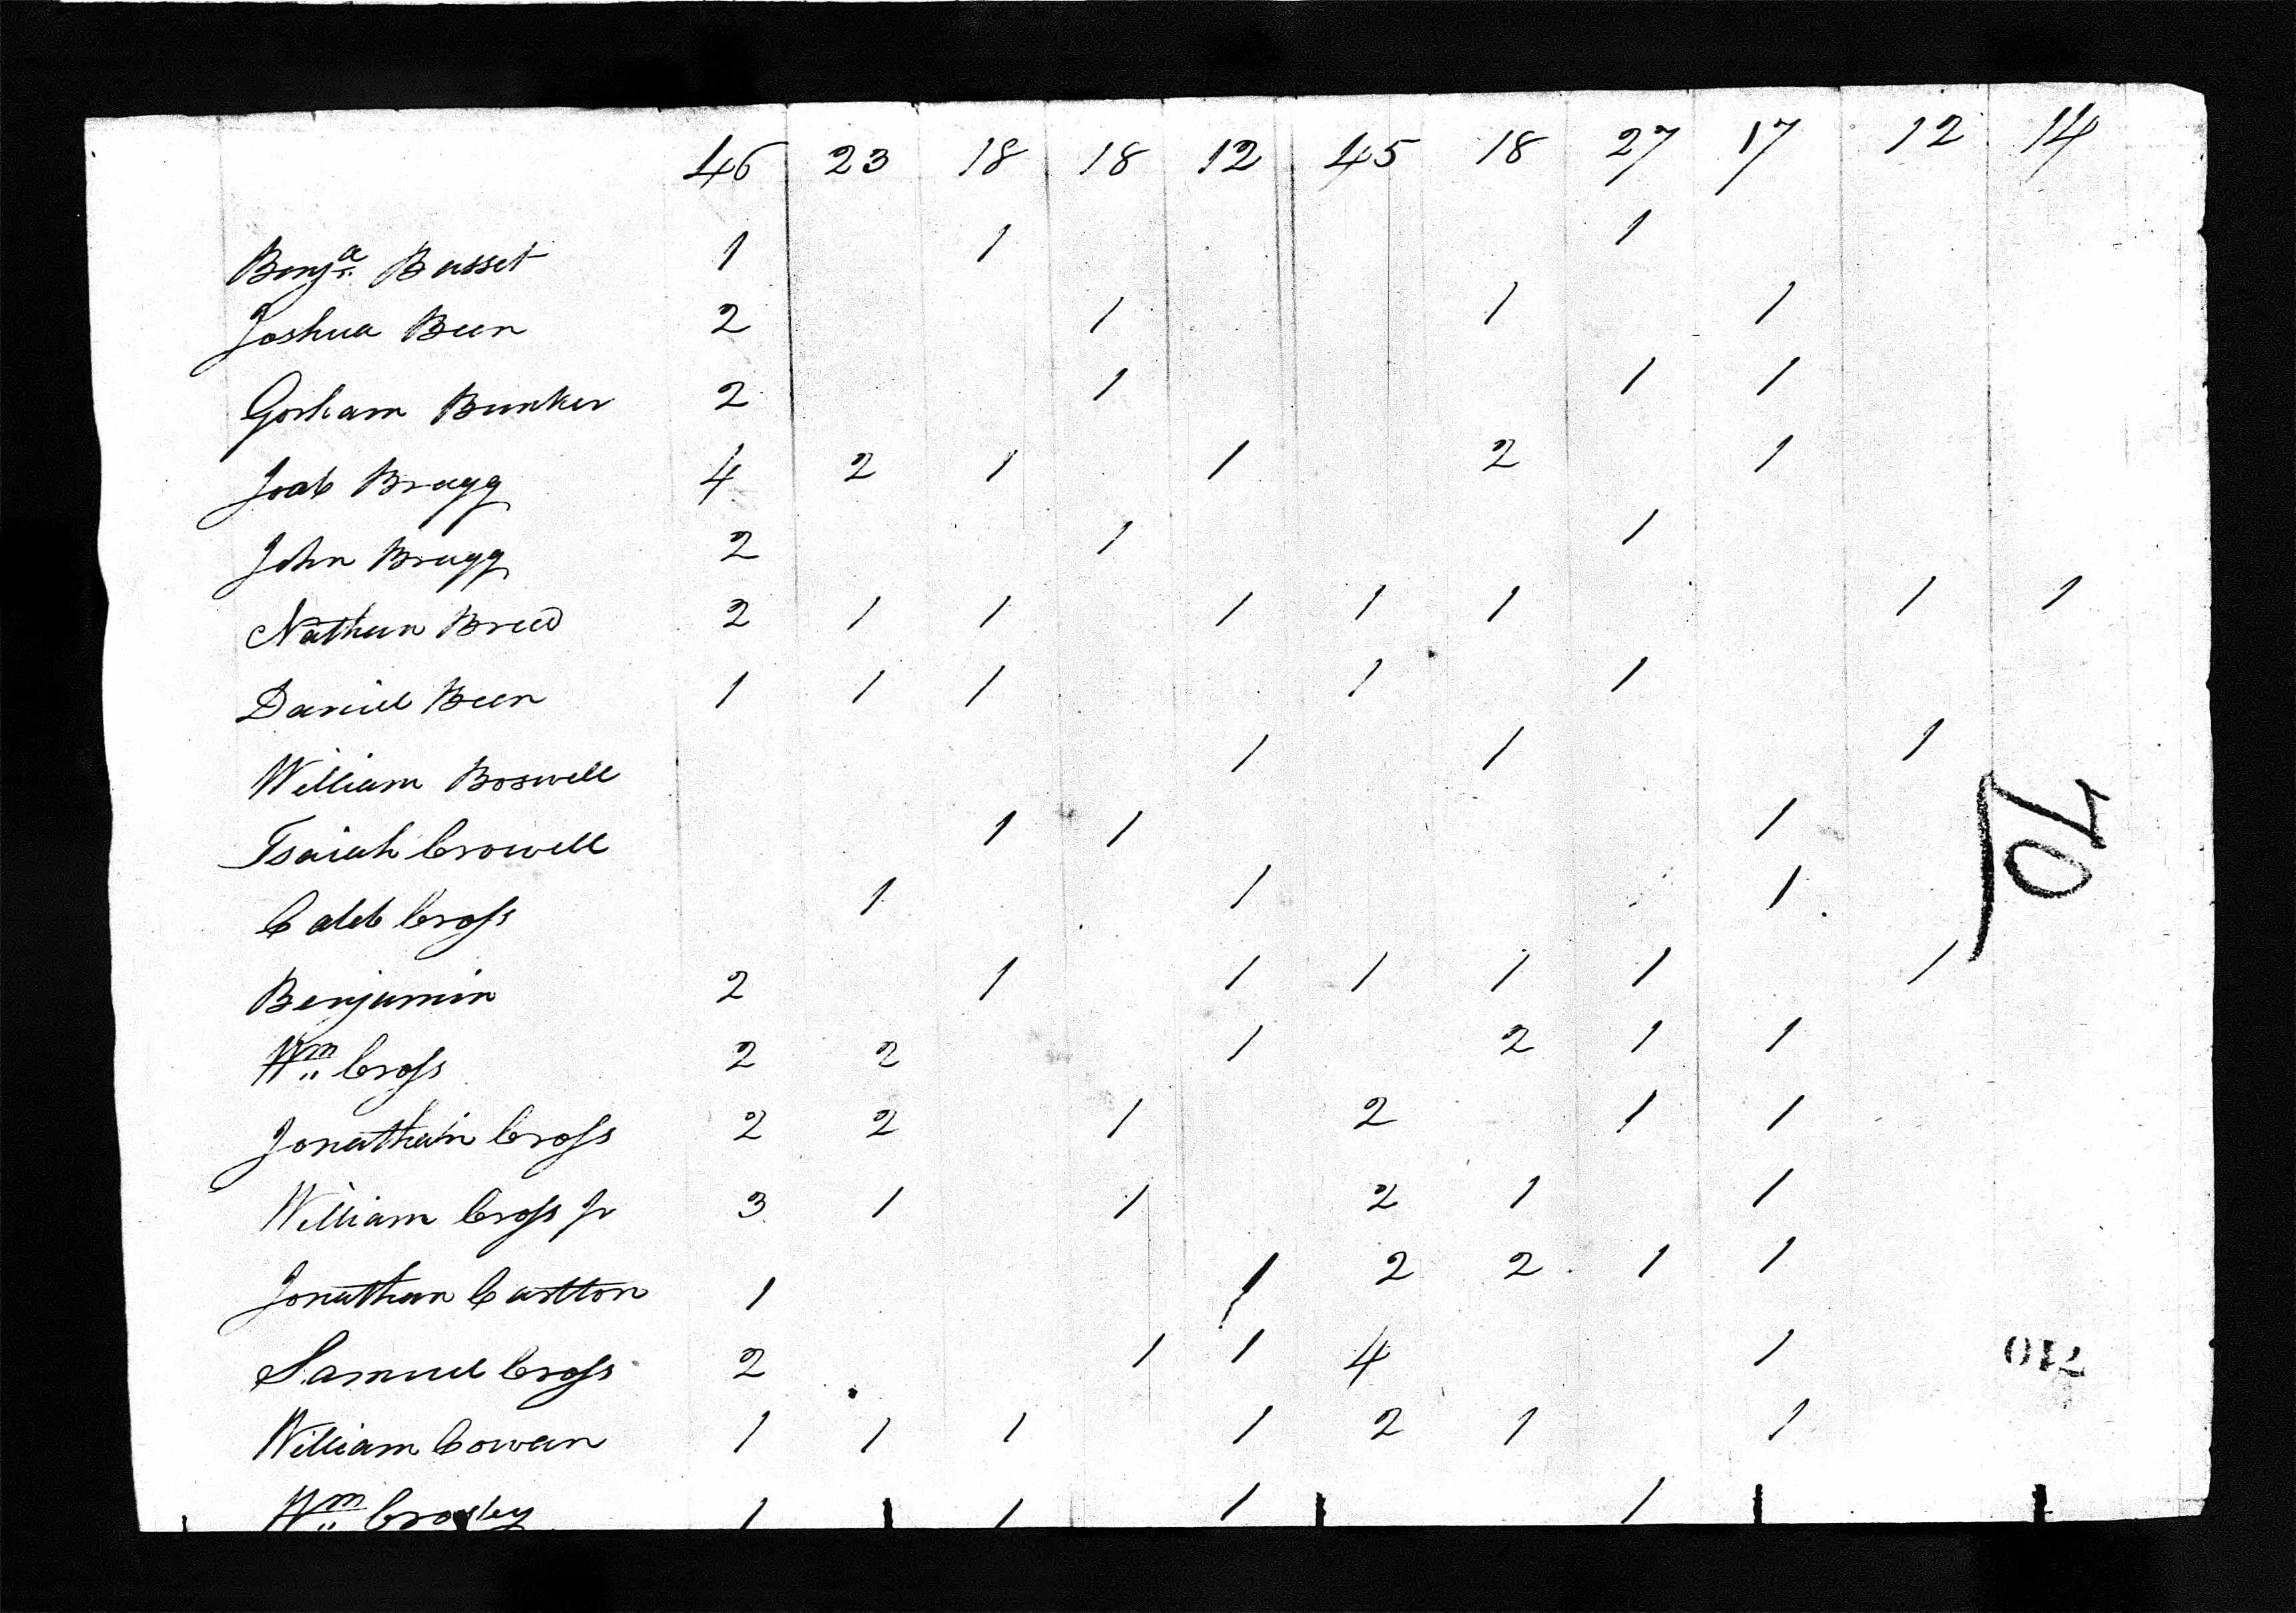 46 23 18 18 12 45 18 27 17 12 14
Benja. Basset 1 1 1
Joshua Been 2 1 1 1
Gorham Bunker 2 1 1 1
Joab Bragg 4 2 1 1 2 1
John Bragg 2 1 1
Nathan Breed 2 1 1 1 1 1 1 1
Daniel Been 1 1 1 1 1
William Boswell 1 1 1
Isaiah Crowell 1 1 1
Caleb Cross 1 1 1
Benjamin 2 1 1 1 1 1 1
Wm Cross 2 2 1 2 1 1
Jonathan Cross 2 2 1 2 1 1
William Cross Jr 3 1 1 2 1 1
Jonathan Carlton 1 1 2 2 1 1
Samuel Cross 2 1 1 4 1
William Cowan 1 1 1 1 2 1 1
Wm Crosby 1 1 1 1
70
710